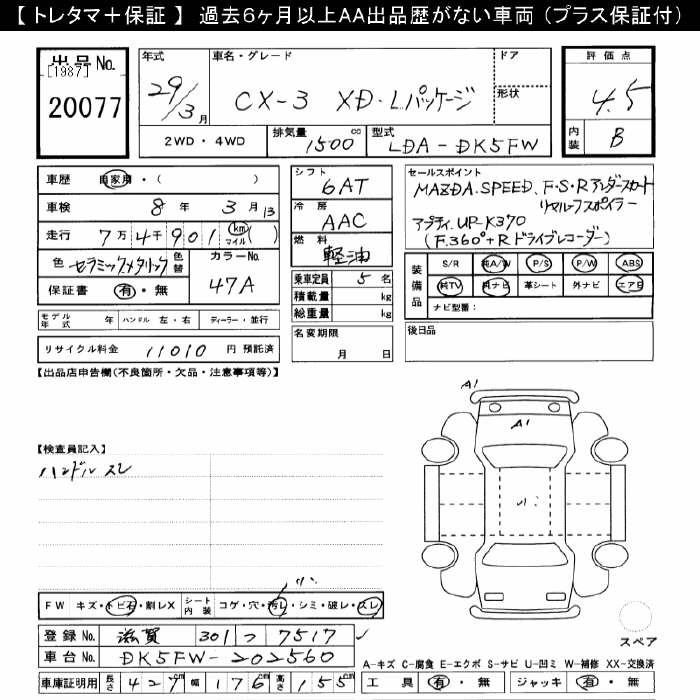 【トレタマ＋保証】 過去6ヶ月以上AA出品歴がない車両（プラス保証付）
出品No.
[1987]
20077
年式 29/3月
車名・グレード CX-3 XD・Lパッケージ
ドア
形状
2WD・4WD
排気量 1500 cc
型式 LDA-DK5FW
評価点 4.5
内装 B
車歴 自家用・( )
車検 8年 3月 13
走行 7万4千901 (km マイル)
色 セラミックメタリック 色替 カラーNo. 47A
保証書 有・無
モデル年式 年 ハンドル 左・右 ディーラー・並行
リサイクル料金 11010 円 預託済
シフト 6AT
冷房 AAC
燃料 軽油
乗車定員 5名
積載量 kg
総重量 kg
名変期限
月 日
セールスポイント
MAZDA.SPEED. F・S・Rアンダースカート
リヤルーフスポイラー
UP-K370
(F.360°+Rドライブレコーダー)
装備品 S/R 純A/W P/S P/W ABS
純TV 純ナビ 革シート 外ナビ エアB
ナビ型番:
後日品
【出品店申告欄(不良箇所・欠品・注意事項等)】
【検査員記入】
ハンドルスレ
A1
A1
小
小
FW キズ・トビ石・割レX シート内装 コゲ・穴・汚レ・シミ・破レ・スレ
登録No. 滋賀 301 つ 7517
車台No. DK5FW-202560
車庫証明用 長さ 427cm 幅 176cm 高さ 155cm
スペア
A-キズ C-腐食 E-エクボ S-サビ U-凹ミ W-補修 XX-交換済
工具 有・無 ジャッキ 有・無